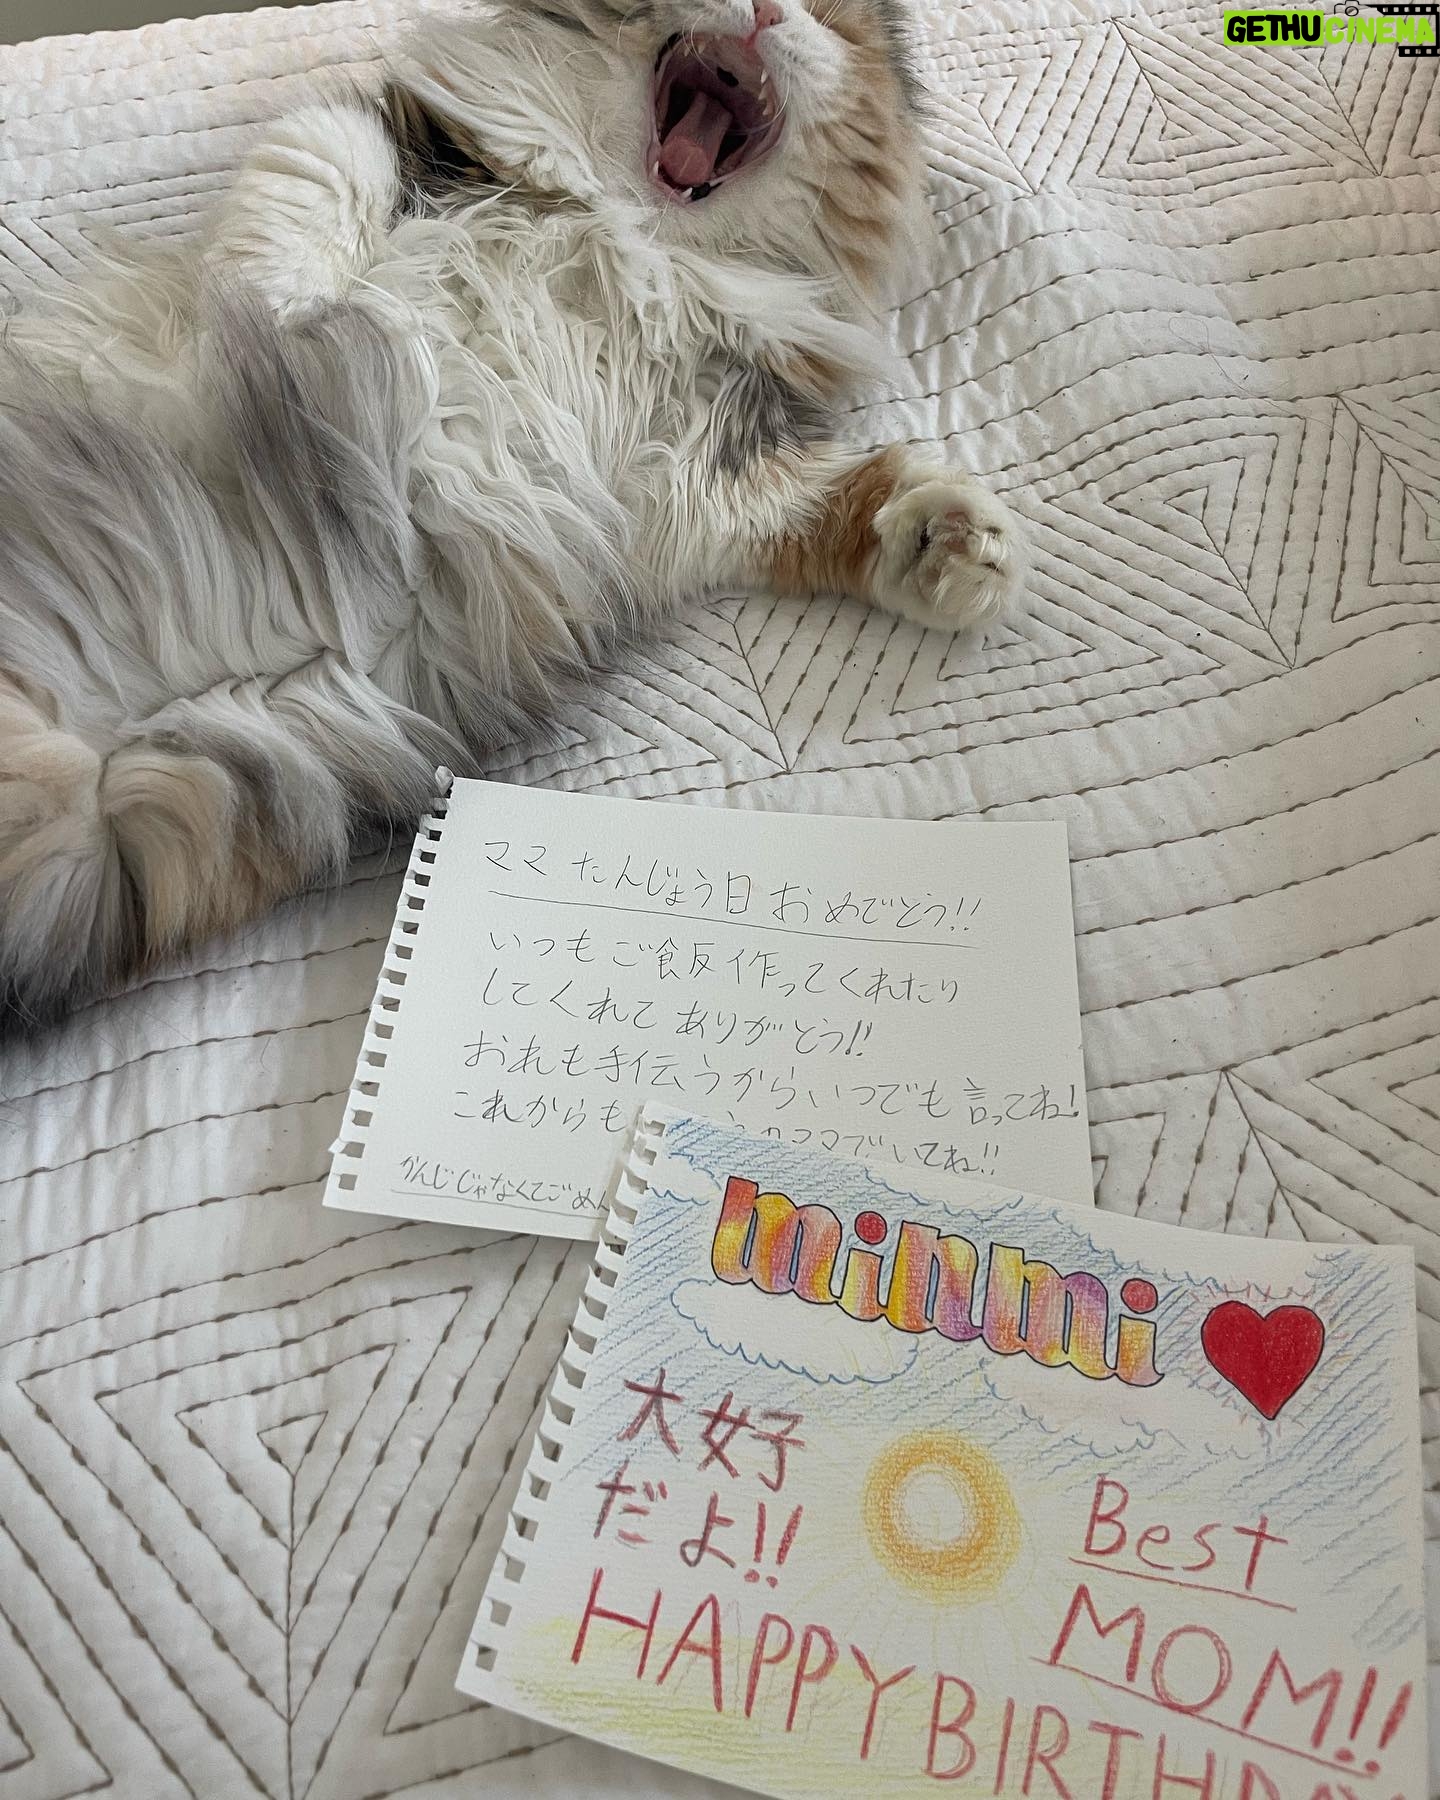 GETHUCINEMA
ママ たんじょう日 おめでとう!!
いつもご飯作ってくれたり
してくれて ありがとう!!
おれも手伝うからいつでも言ってね!
これからも ママでいてね!!
かんじじゃなくてごめん
minmi
大好
だよ!!
Best
MOM!!
HAPPY BIRTHDAY